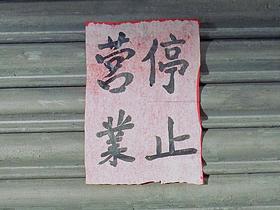 停止
营業